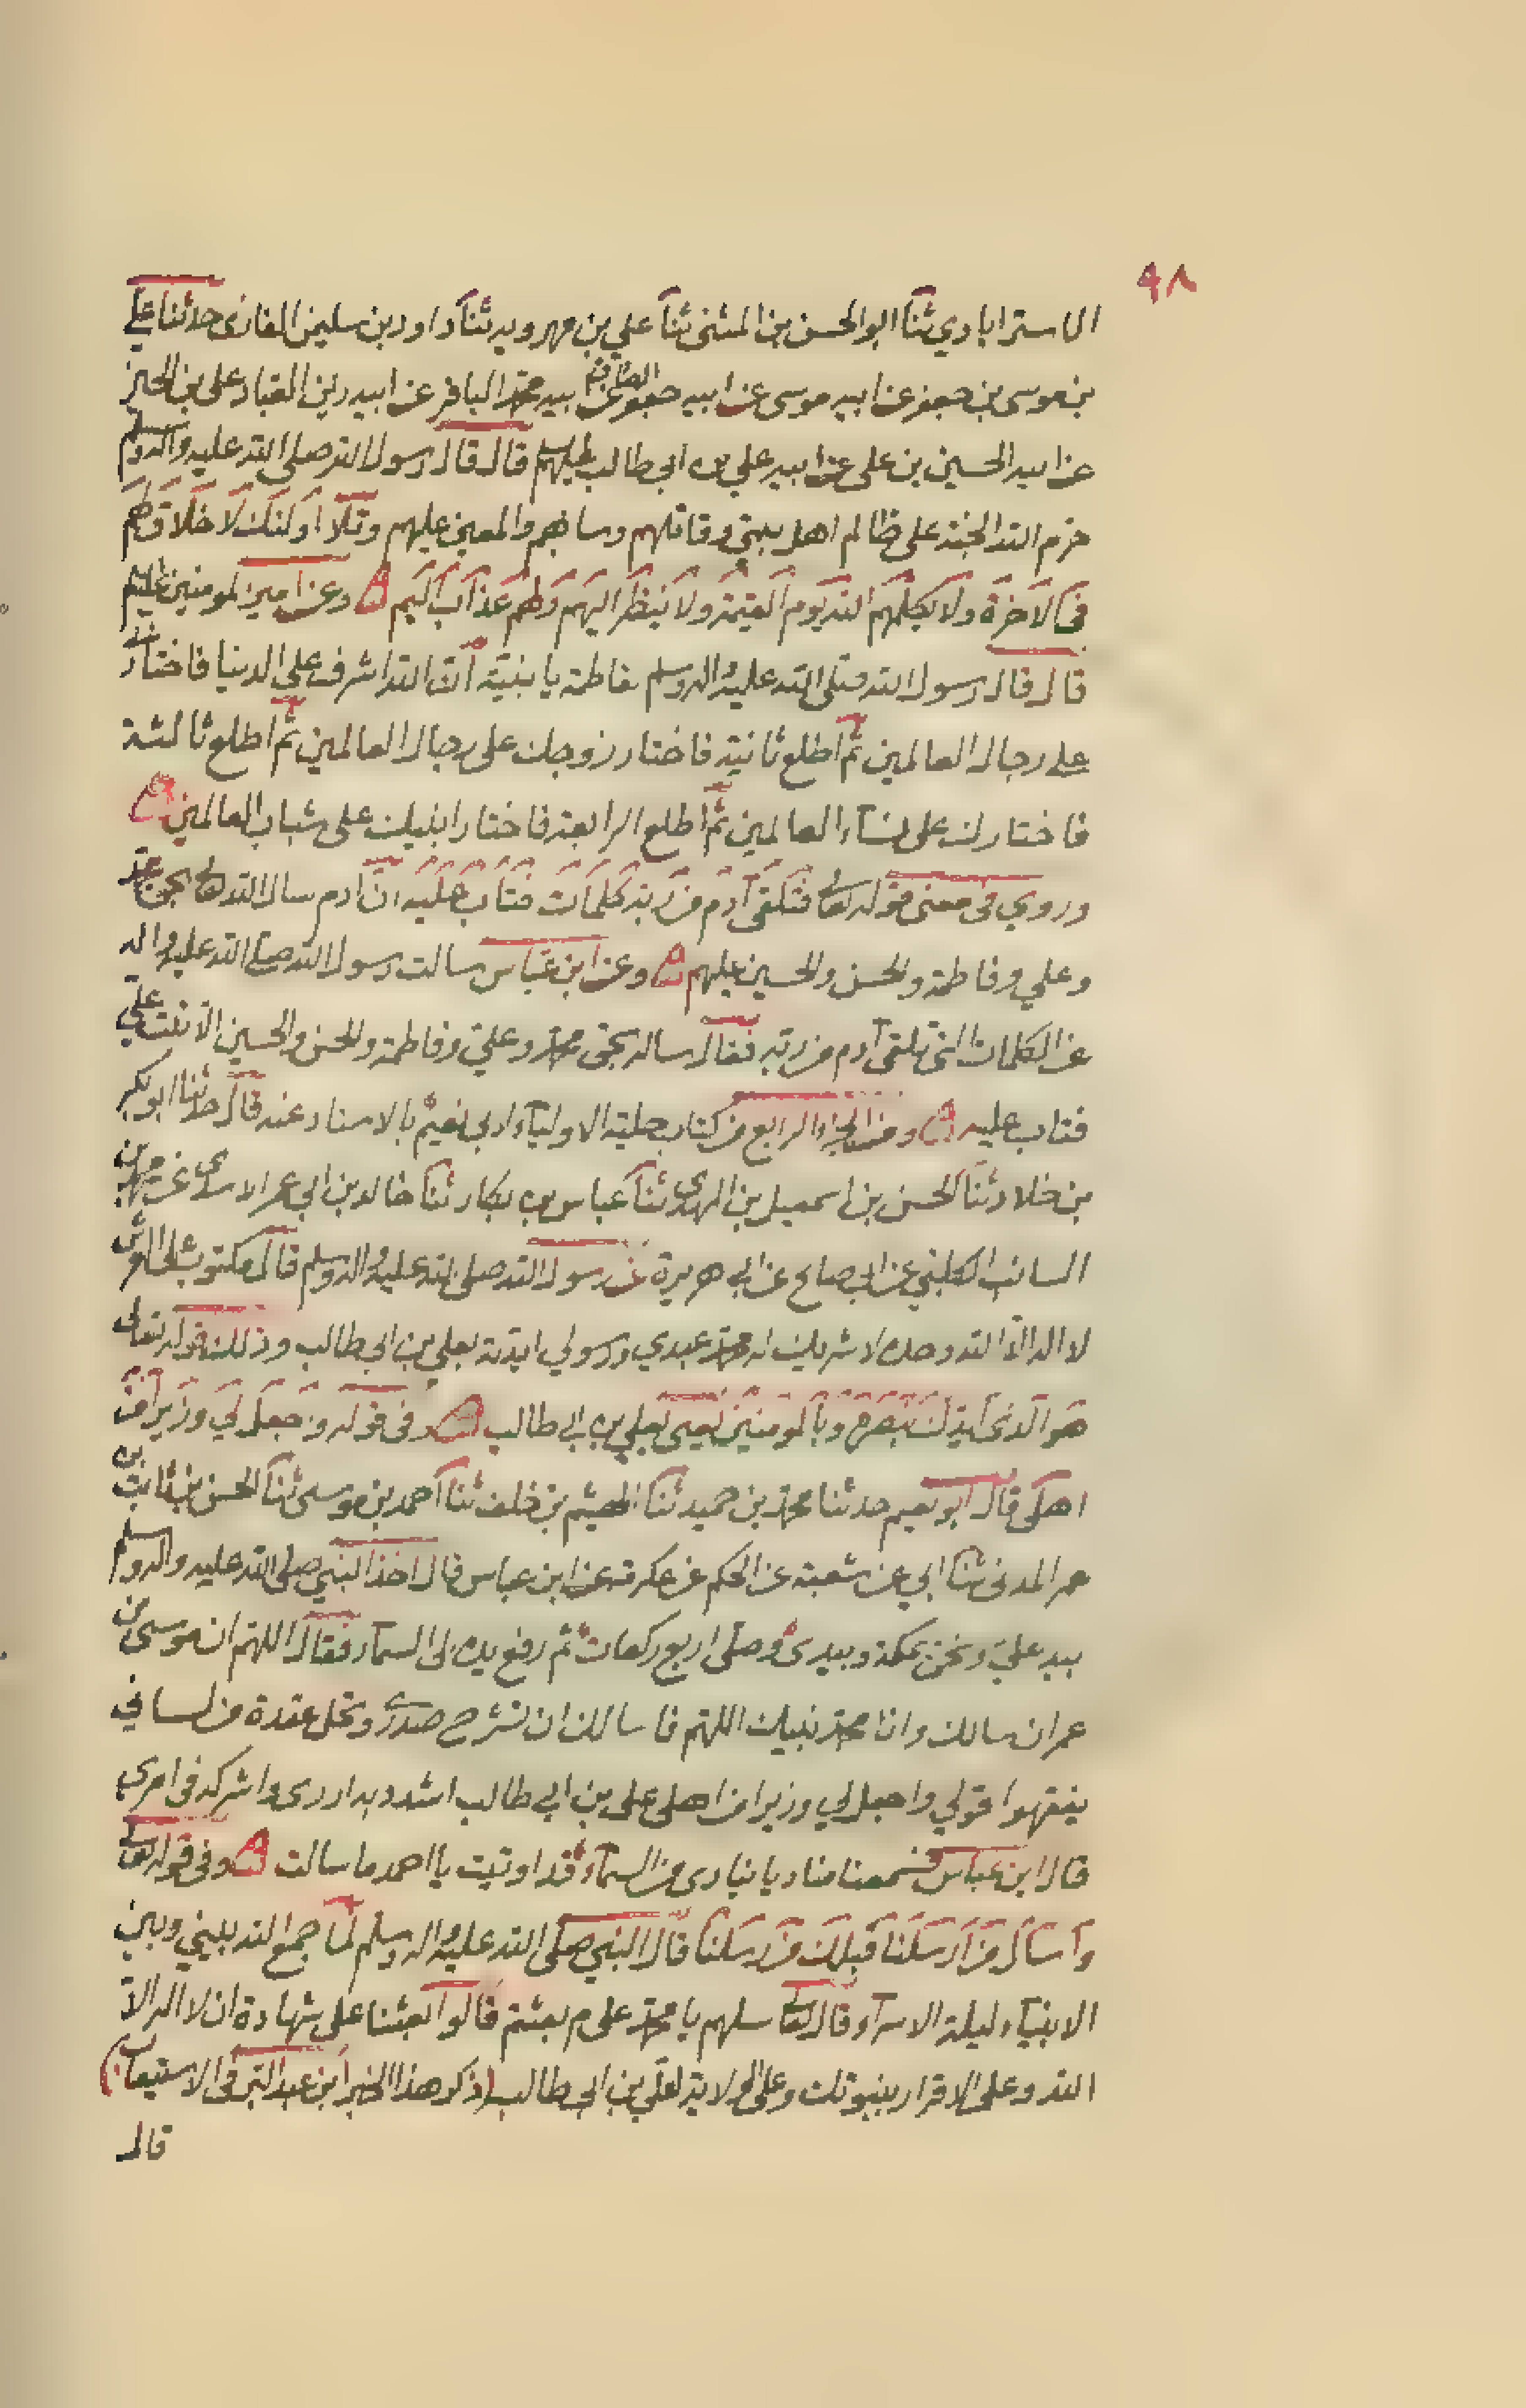 ٩٨
الاسترابادي ثنا ابو الحسن بن المثنى ثنا علي بن مهرويه ثنا داود بن سليمن الغازى حدثنا علي
بن موسى بن جعفر عن ابيه موسى عن ابيه جعفر الصادق عن ابيه محمد الباقر عن ابيه زين العباد على بن الحسين
عن ابيه الحسين بن على عن ابيه علي بن ابي طالب عليهم قال قال رسول الله صلى الله عليه واله وسلم
حرم الله الجنة على ظالم اهل بيتي وقاتلهم وسابهم والمعين عليهم وتلا اولئك لا خلاق لهم
فى الاخرة ولا يكلمهم الله يوم القيمة ولا ينظر اليهم ولهم عذاب اليم وعن امير المومنين عليه السلم
قال قال رسول الله صلى الله عليه واله وسلم لفاطمة يا بنية ان الله اشرف على الدنيا فاختارني
على رجال العالمين ثم اطلع ثانية فاختار زوجك على رجال العالمين ثم اطلع ثالثة
فاختارك على نسآء العالمين ثم اطلع الرابعة فاختار ابنيك على شباب العالمين
وروي فى معنى قوله تعالى فتلقى آدم من ربه كلمات فتاب عليه ان آدم سال الله تعالى بحق محمد
وعلي وفاطمة والحسن والحسين عليهم وعن ابن عباس سالت رسول الله صلى الله عليه واله
عن الكلمات التي تلقى آدم من ربه فقال ساله بحق محمد وعلي وفاطمة والحسن والحسين الا تبت علي
فتاب عليه ومن الجزء الرابع من كتاب حلية الاوليآء لابي نعيم بالاسناد عنه قال حدثنا ابو بكر
بن خلاد ثنا الحسن بن اسمعيل بن المهدى ثنا عباس بن بكار ثنا خالد بن ابي عمر الاسدى عن محمد بن
السائب الكلبي عن ابي صالح عن ابي هريرة عن رسول الله صلى الله عليه واله وسلم قال مكتوب على العرش
لا اله الا الله وحده لا شريك له محمد عبدي ورسولي ايدته بعلي بن ابي طالب وذلك قوله تعالى
هو الذى ايدك بنصره وبالمومنين يعنى بعلي بن ابي طالب وفى قوله واجعل لي وزيرا من
اهلى قال ابو نعيم حدثنا محمد بن حميد ثنا الهيثم بن خلف ثنا احمد بن موسى ثنا الحسن بن ثابت بن
عمر المدنى ثنا ابي عن شعبة عن الحكم عن عكرمة عن ابن عباس قال اخذ النبي صلى الله عليه واله وسلم
بيد علي ونحن بمكة وبيدى وصلى اربع ركعات ثم رفع يده الى السمآء فقال اللهم ان موسى بن
عمران سالك وانا محمد نبيك اللهم فاسالك ان تشرح صدرى وتحل عقدة من لساني
يفقهوا قولي واجعل لي وزيرا من اهلي على بن ابي طالب اشدد به ازرى واشركه فى امرى
قال ابن عباس فسمعنا مناديا ينادى من السمآء قد اوتيت يا احمد ما سالت وفى قوله تعالى
واسال من ارسلنا قبلك من رسلنا قال النبي صلى الله عليه واله وسلم لما جمع الله بيني وبين
الانبيآء ليلة الاسرآء قال تعالى سلهم يا محمد على م بعثتم قالوا بعثنا على شهادة ان لا اله الا
الله وعلى الاقرار بنبوتك وعلى الولاية لعلي بن ابي طالب (ذكر هذا الخبر ابن عبد البر فى الاستيعاب)
قال